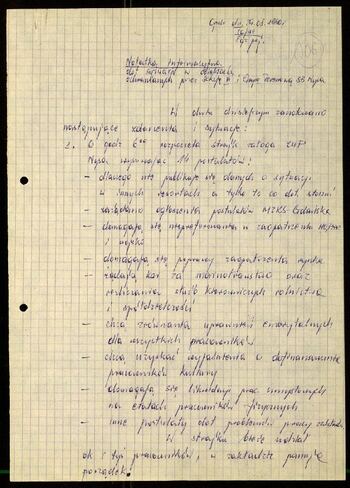 Opole dn. 30.08.1980r.
Tajne
Egz. poj.
106
Notatka Informacyjna
dot. sytuacji w obiektach
ochranianych przez Sekcję i Grupę Terenową SB Nysa
W dniu dzisiejszym zanotowano
następujące zdarzenia i sytuacje:
1. O godz 6⁰⁰ rozpoczęła strajk załoga ZUP
Nysa wysuwając 14 postulatów:
- dlaczego nie publikuje się danych o sytuacji
w innych resortach a tylko te co dot. stoczni
- zażądano ogłoszenia postulatów MZKS Gdańska
- domagają się nieprzetrzymywania w zaopatrzeniu milicji
i wojska
- domagają się poprawy zaopatrzenia rynku
- żądają kar za marnotrawstwo oraz
rozliczania służb kierowniczych rolnictwa
i spółdzielczości
- chcą zrównania uprawnień emerytalnych
dla wszystkich pracowników
- chcą uzyskać wyjaśnienia o dofinansowanie
pracowników kultury
- domagają się likwidacji prac umysłowych
na etatach pracowników fizycznych
- inne postulaty dot. problemów pracy zakładu
W strajku bierze udział
ok 2 tyś pracowników, w zakładzie panuje
porządek.